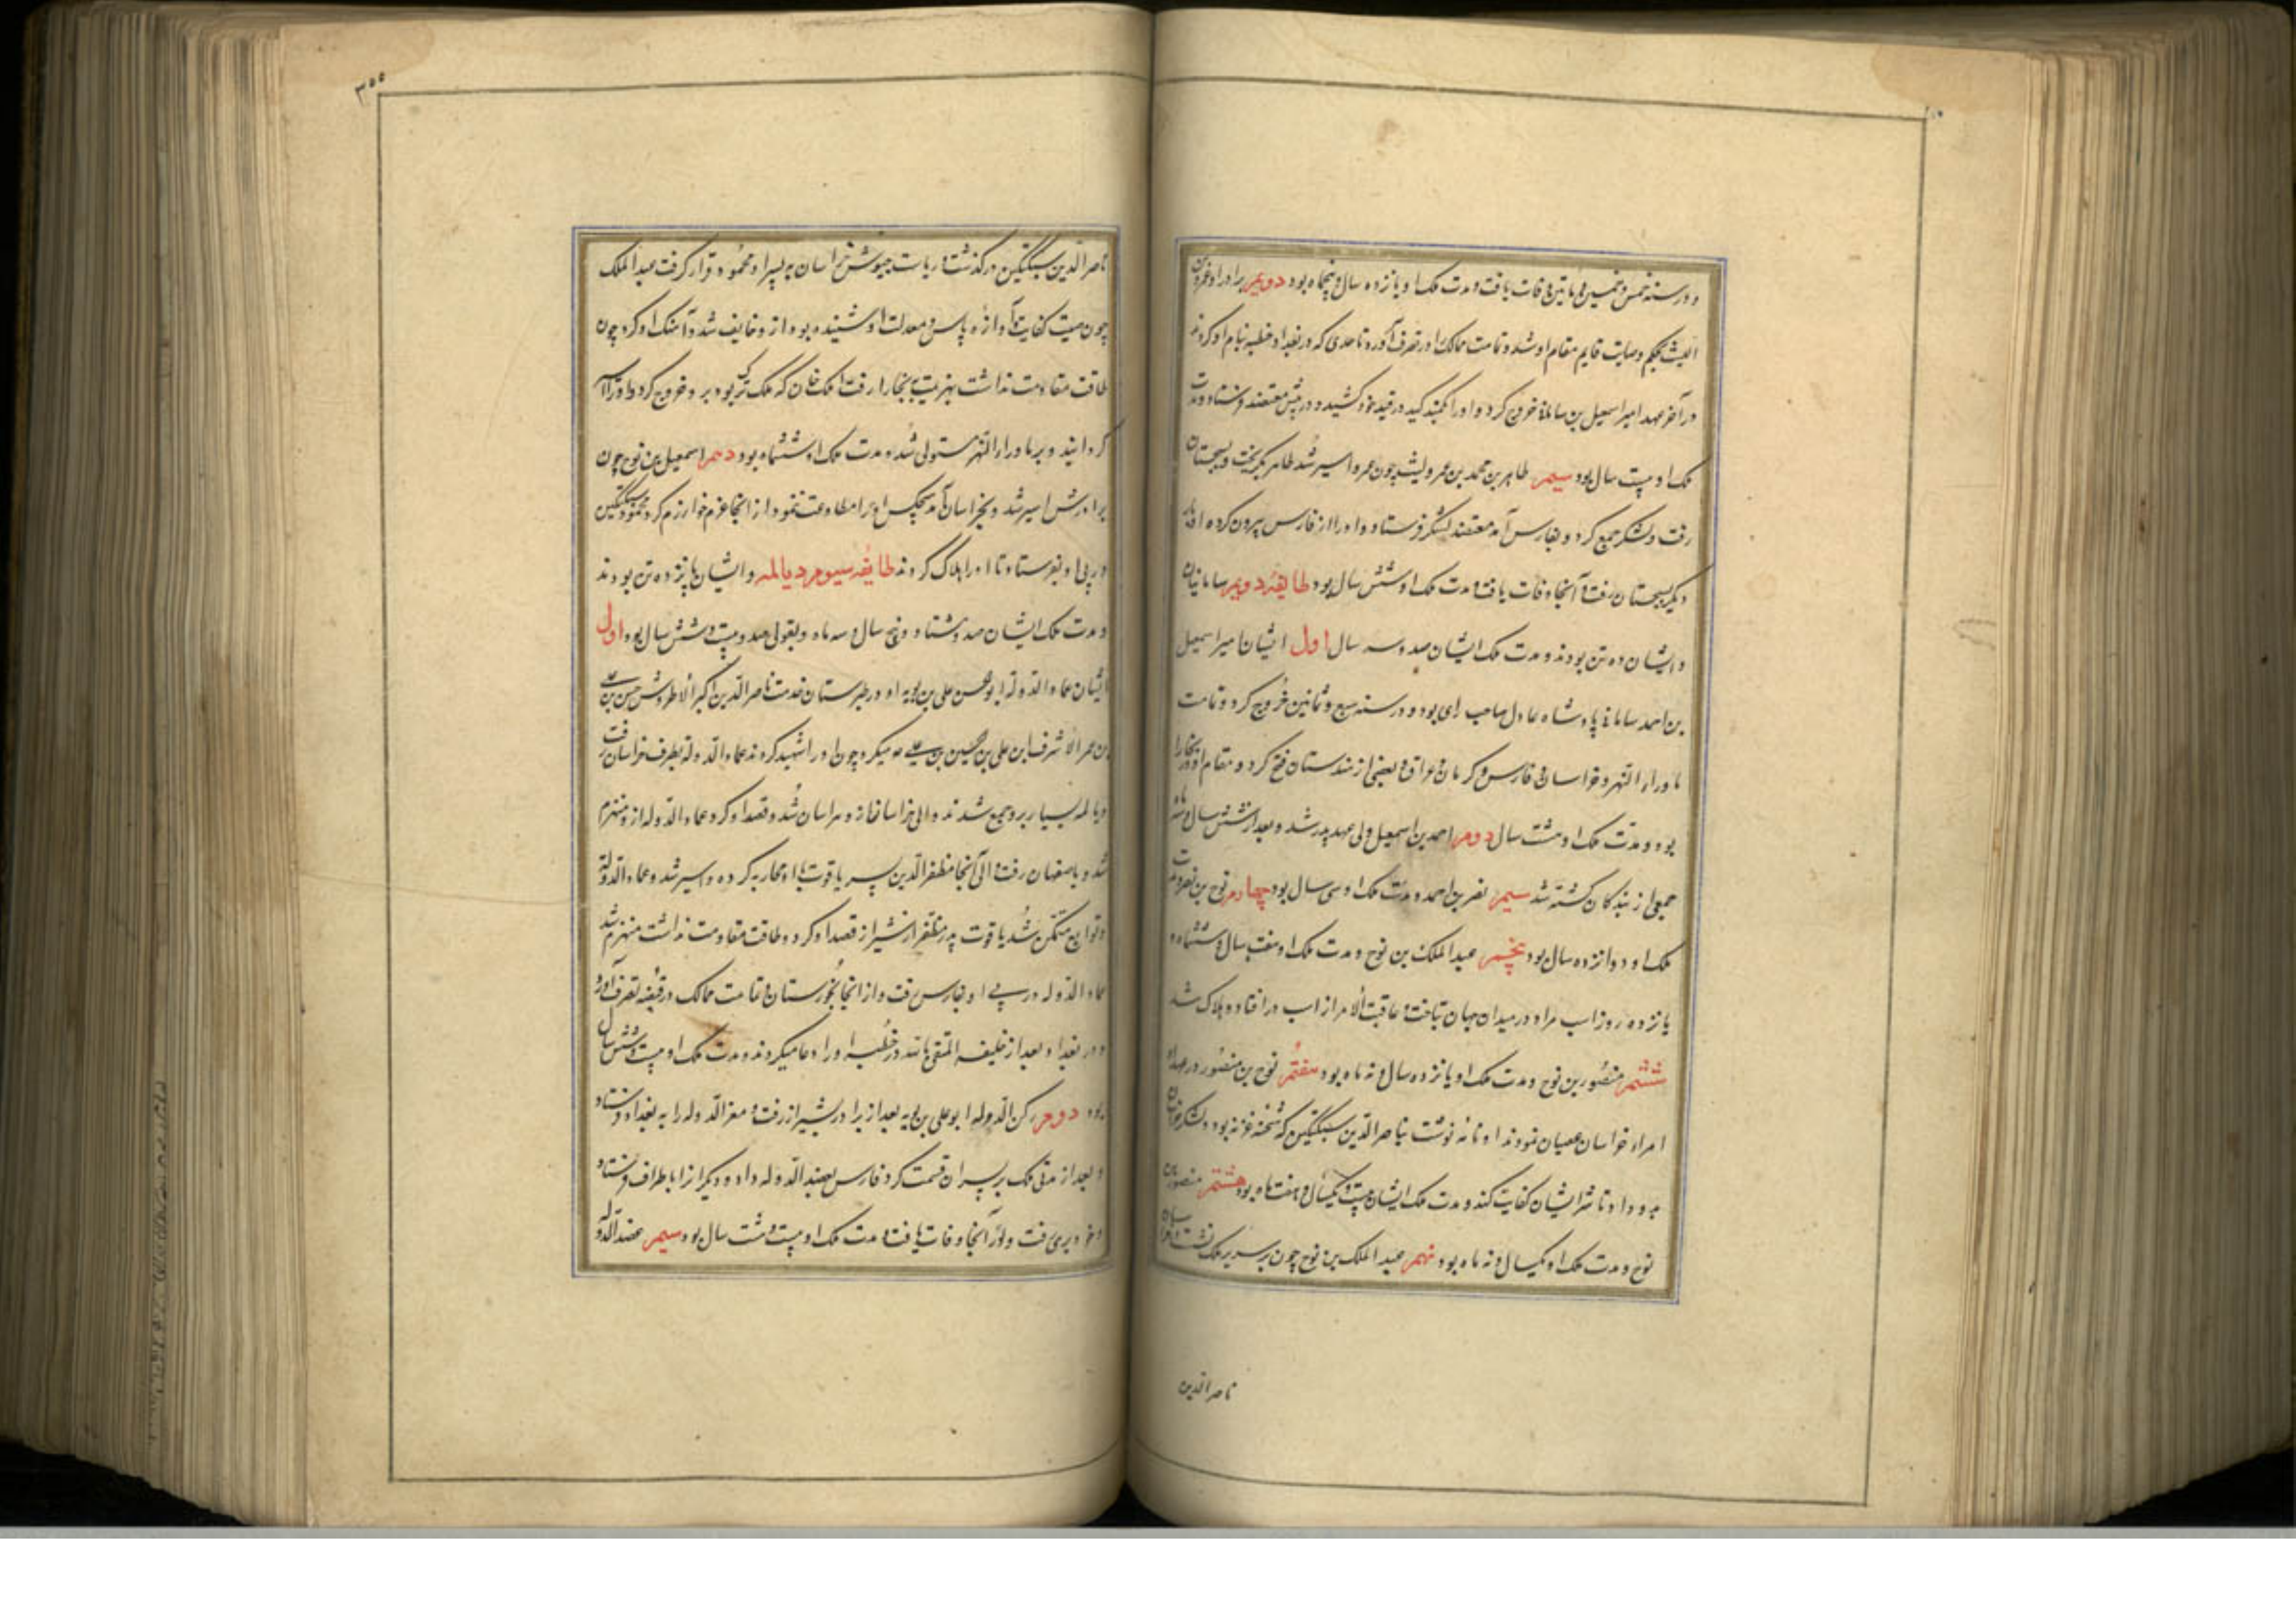 و در سنه خمس و خمسین و ماتین وفات یافت و مدت ملک او پانزده سال و پنجاه بود دویم برادر او عمرو بن
اللیث بحکم وصایت قایم مقام او شد و تمامت ممالک او در تصرف آورد تا حدی که در بغداد خطبه بنام او کردند
در آخر عهد امیر اسمعیل بن سامانی خروج کرد و او را بکمند کید در قید خود کشیده در پیش معتضد فرستاد و مدت
ملک او بیست سال بود سیم طاهر بن محمد بن عمرو لیث چون عمرو اسیر شد طاهر بگریخت و بسجستان
رفت و لشکر جمع کرد و بفارس آمد معتضد لشکر فرستاد و او را از فارس بیرون کرده او بار
دیگر بسجستان رفت و آنجا وفات یافت و مدت ملک او شش سال بود طایفه دویم سامانیان
و ایشان ده تن بودند و مدت ملک ایشان صد و سه سال اول ایشان امیر اسمعیل
بن احمد سامانی پادشاه عادل صاحب رای بود و در سنه سبع و ثمانین خروج کرد و تمامت
ماوراء النهر و خراسان و فارس و کرمان و عراق و بعضی از هندستان فتح کرد و مقام او در بخارا
بود و مدت ملک او هشت سال دوم احمد بن اسمعیل ولی عهد پدر شد و بعد از شش سال و سه ماه
جمعی از بندکان کشته شد سیم نصر بن احمد و مدت ملک او سی سال بود چهارم نوح بن نصر و مدت
ملک او دوازده سال بود پنجم عبد الملک بن نوح و مدت ملک او هفت سال و ششماه و
پانزده روز اسب مراد در میدان جهان تاخت و عاقبت الامر از اسب در افتاد و هلاک شد
ششم منصور بن نوح و مدت ملک او پانزده سال و نه ماه بود هفتم نوح بن منصور در عهد او
امراء خراسان عصیان نمودند او نامه نوشت بناصر الدین سبکتکین که شحنه غزنه بود و لشکر خراسان
بدو داد تا شر ایشان کفایت کند و مدت ملک ایشان بیست و یکسال و هفت ماه بود هشتم منصور بن
نوح و مدت ملک او یکسال و نه ماه بود نهم عبد الملک بن نوح چون بر سریر ملک نشست
ناصر الدین
۳۰۰
ناصر الدین سبکتکین در گذشت و ریاست جیوش خراسان به پسر او محمود قرار گرفت عبد الملک
چون صیت کفایت و آوازه باس و معدلت او شنیده بود از و خایف شد و آهنک او کرد چون
طاقت مقاومت نداشت بهزیمت به بخارا رفت ایلک خان که ملک ترک بود برو خروج کرد و او را
گردانید و بر ماوراء النهر مستولی شد و مدت ملک او ششماه بود دهم اسمعیل بن نوح چون
برادرش اسیر شد و بخراسان آمد هیچکس او را مطاوعت ننمود از انجا عزم خوارزم کرد محمود سبکتکین
در پی او بفرستاد تا او را هلاک کردند طایفه سیوم دیالمه و ایشان پانزده تن بودند
و مدت ملک ایشان صد و هشتاد و پنج سال و سه ماه و بقولی صد و بیست و شش سال بود اول
ایشان عماد الدوله ابو الحسن علی بن بویه او در طبرستان خدمت ناصر الدین اکبر الاطروش حسن بن علی
بن عمر الاشرف ابن علی بن حسین بن علی ع میکرد چون او را شهید کردند عماد الدوله بطرف خراسان رفت
دیالمه بسیار برو جمع شدند والی خراسان ازو هراسان شد و قصد او کرد و عماد الدوله ازو منهزم
شد و باصفهان رفت و الی آنجا مظفر الدین پسر یاقوت با او محاربه کرده و اسیر شد و عماد الدوله
و توابع متمکن شد یاقوت پدر مظفر از شیراز قصد او کرد و طاقت مقاومت نداشت منهزم شد
عماد الدوله در پی او بفارس رفت و از انجا بخورستان و تمامت ممالک در قبضه تصرف آورد
و در بغداد بعد از خلیفه المتقی بالله در خطبه او را دعا میکردند و مدت ملک او بیست و شش سال
بود دوم رکن الدوله ابو علی بن بویه بعد از برادر بشیراز رفت و معز الدوله را به بغداد فرستاد
و بعد از مدتی ملک بر پسران قسمت کرد فارس بعضد الدوله داد و دیگرانرا باطراف فرستاد
و خود بری رفت و آنجا وفات یافت و مدت ملک او بیست و هشت سال بود سیم عضد الدوله